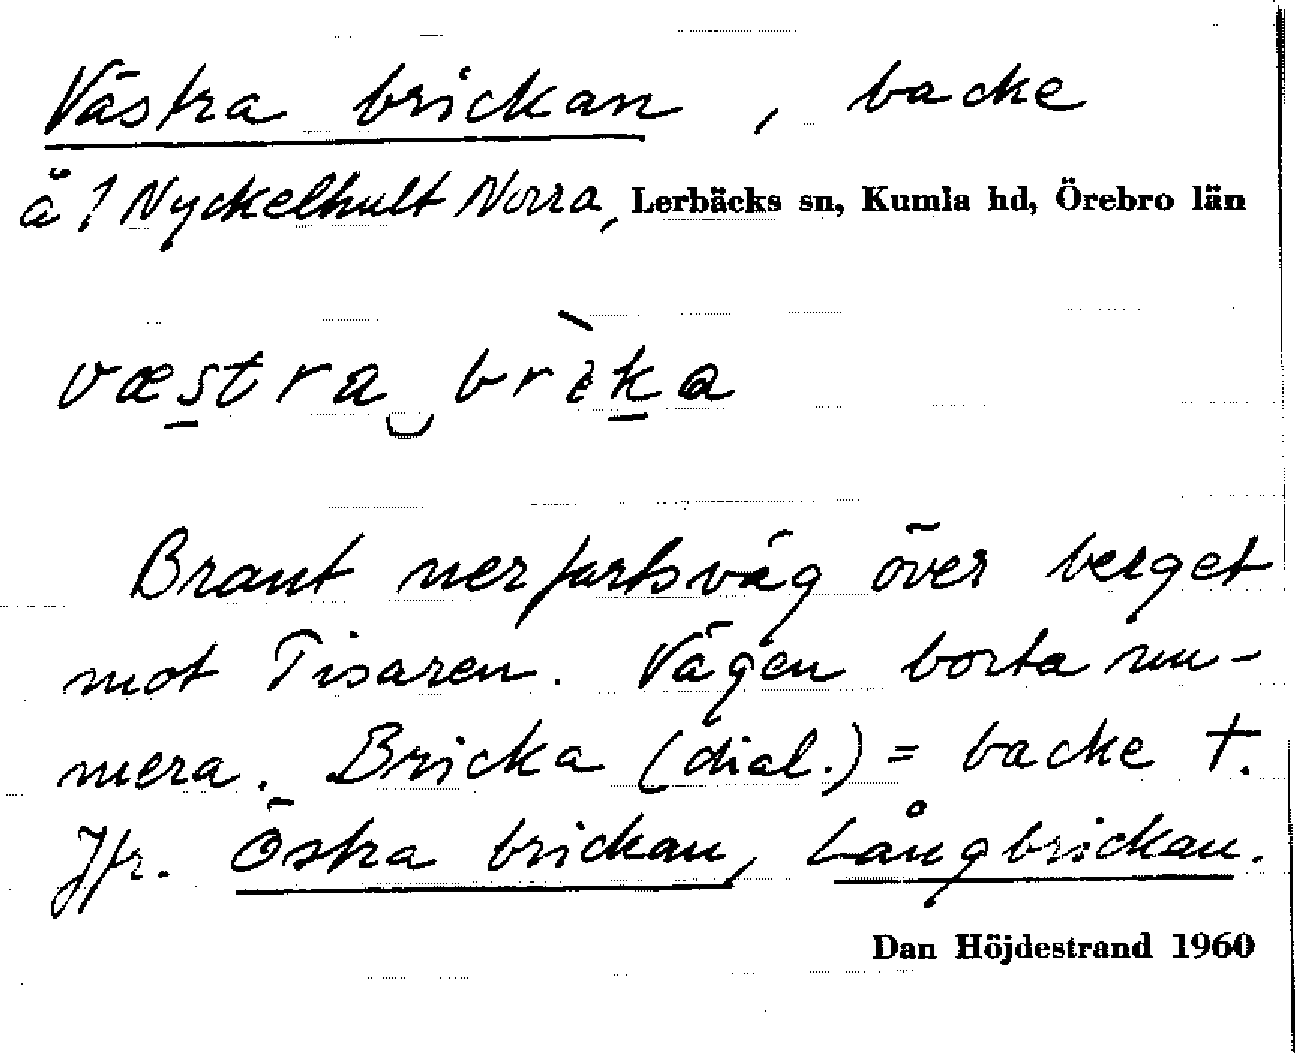 Västra brickan, backe
å 1 Nyckelhult Norra, Lerbäcks sn, Kumla hd, Örebro län
væstra brèka
Brant nerfartsväg över berget
mot Tisaren. Vägen borta nu-
mera. Bricka (dial.) = backe †.
Jfr. Östra brickan, Långbrickan.
Dan Höjdestrand 1960